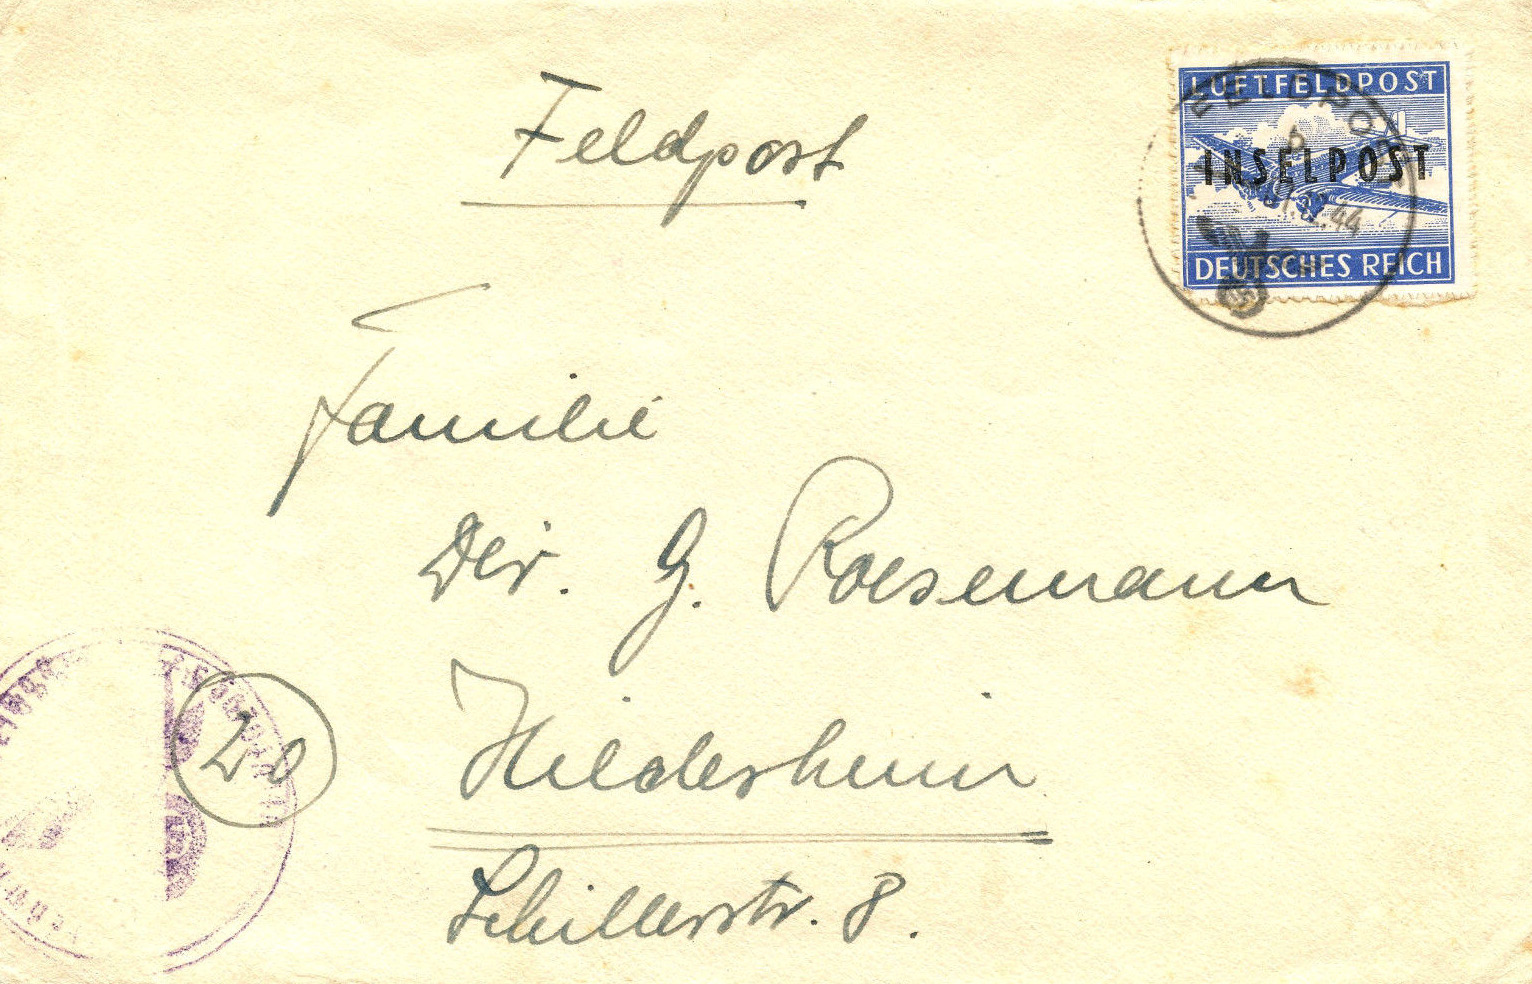 Feldpost
LUFTFELDPOST
INSELPOST
DEUTSCHES REICH
FELDPOST
b
44
Familie
Dir. G. Roesemann
Hildesheim
20
Schillerstr. 8.